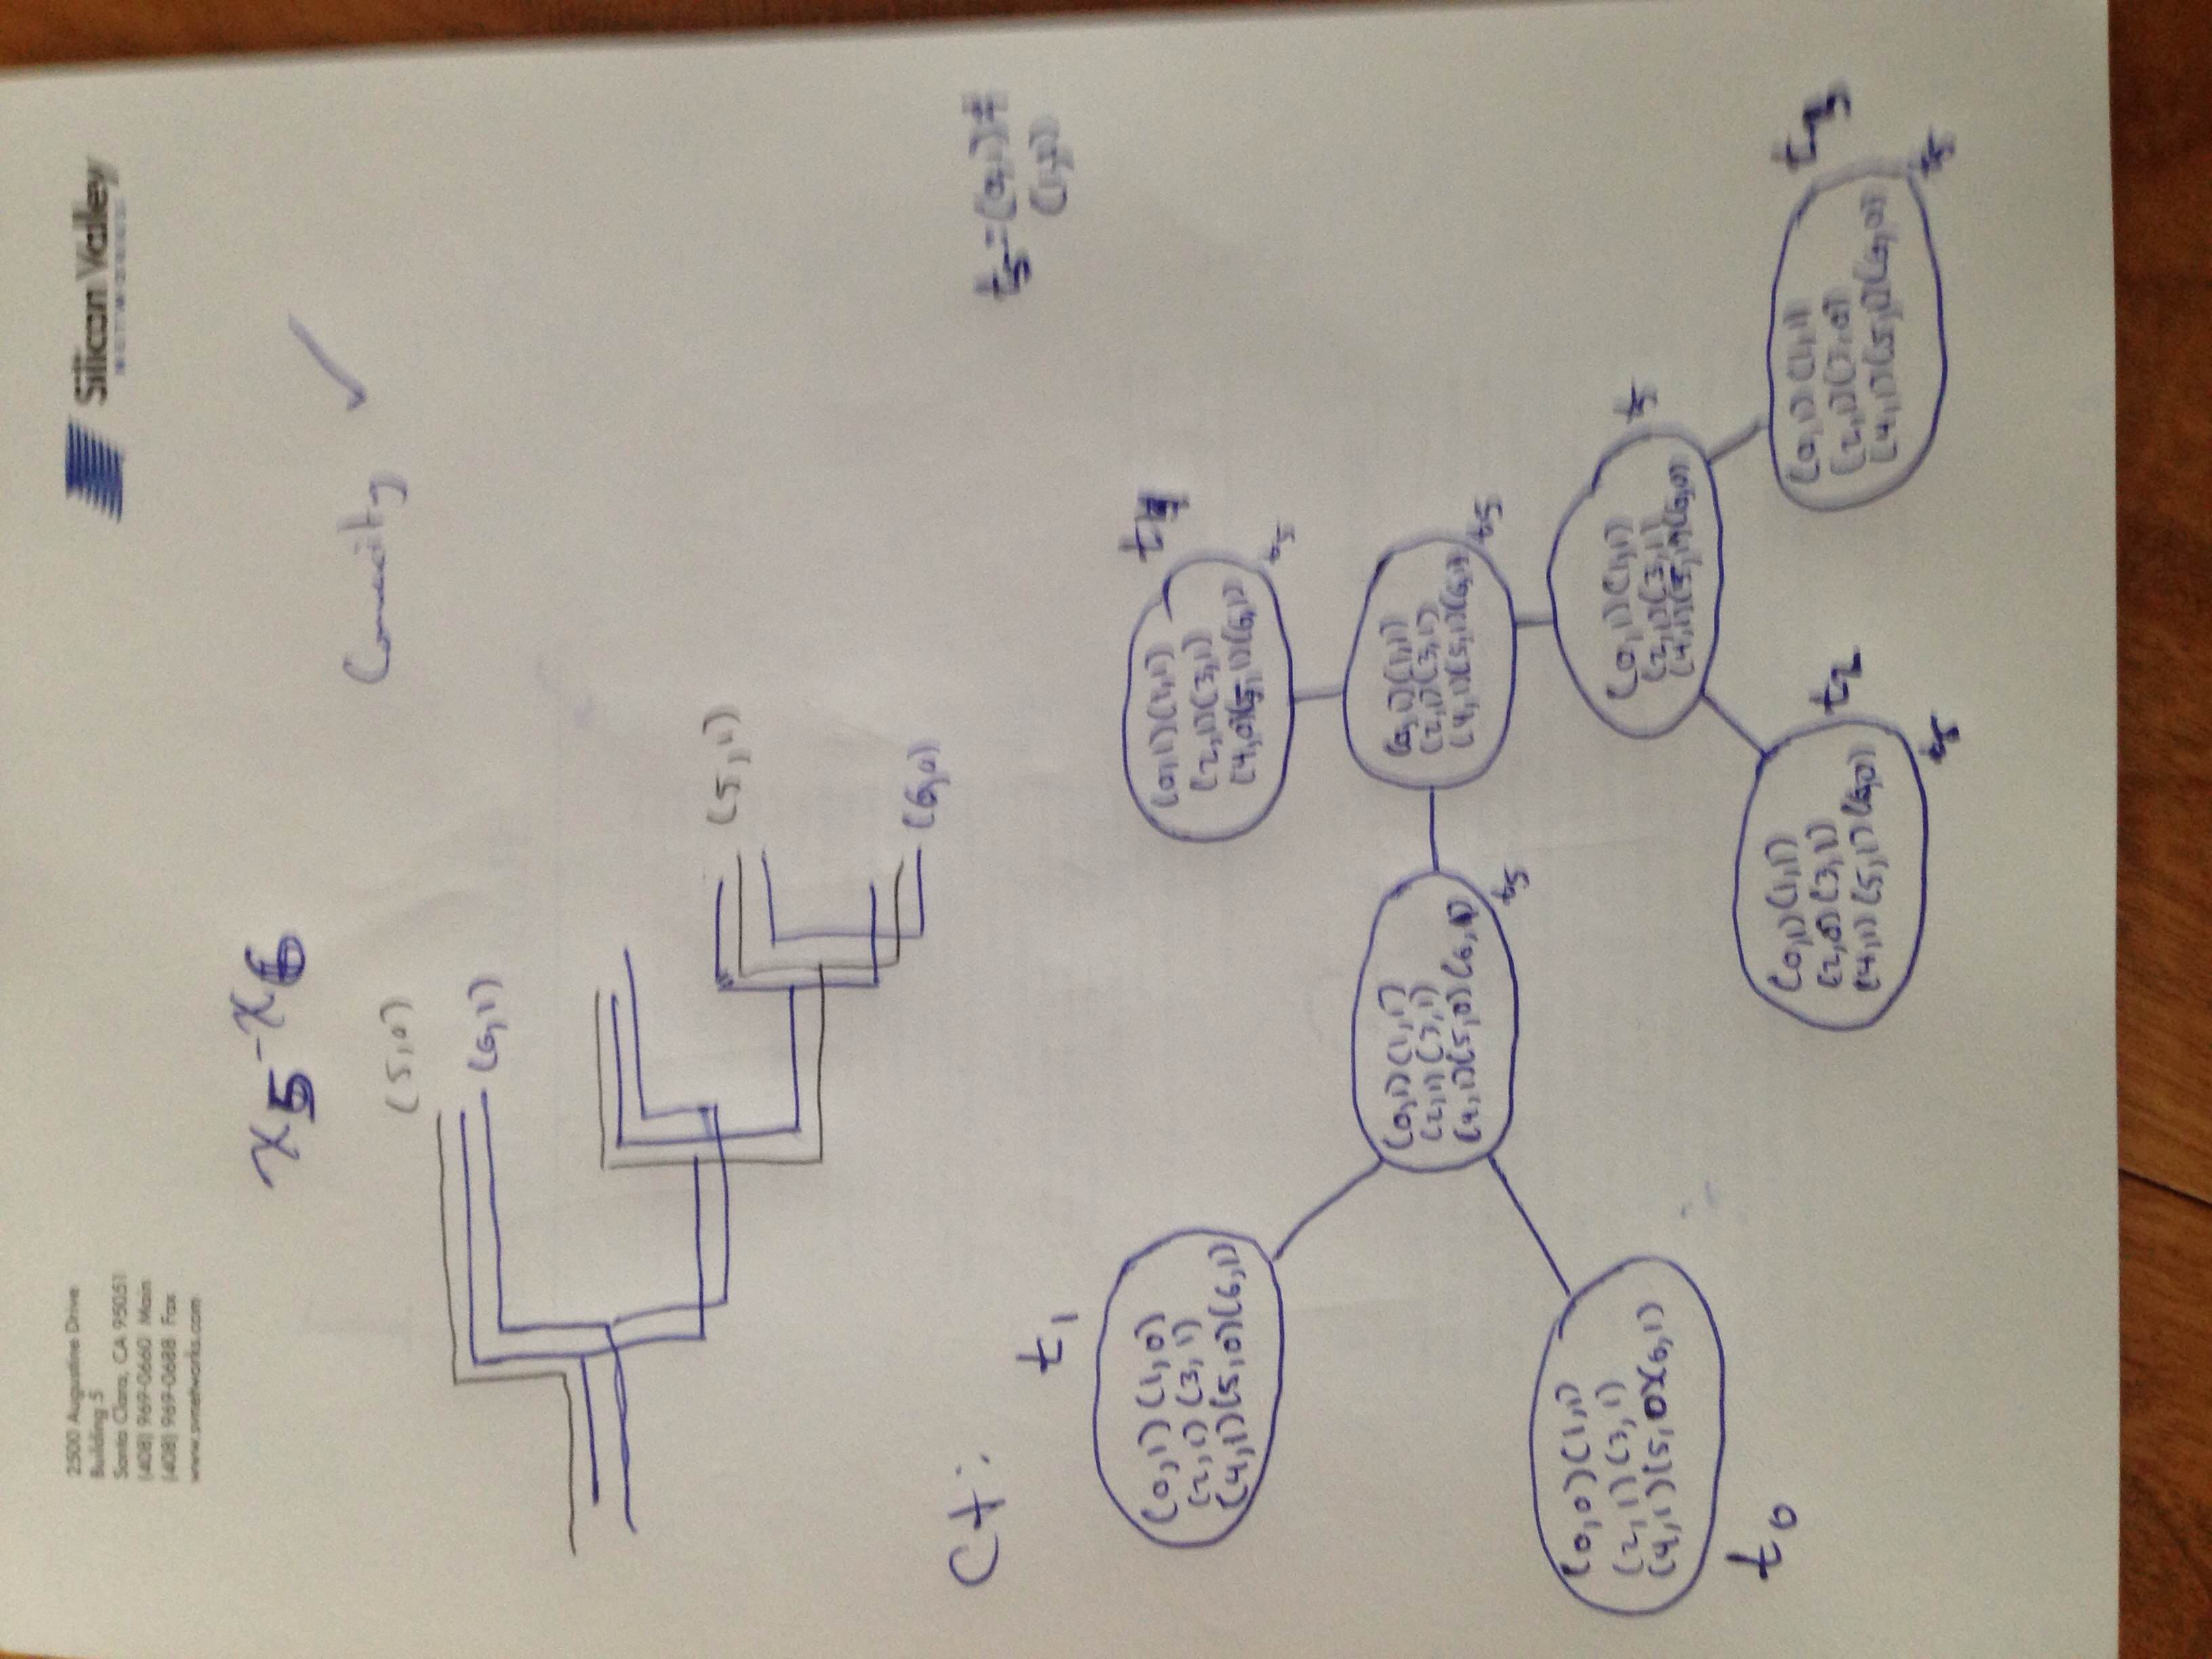 2500 Augustine Drive
Building 5
Santa Clara, CA 95051
(408) 969-0660 Main
(408) 969-0688 Fax
www.svnetworks.com
Silicon Valley
NETWORKS
x5-x6
✓
(5,0)
(6,1)
(5,1)
(6,0)
Ct:
t5=(0,1)≠
t1
(0,1)(1,0)
(2,1)(3,1)
(4,1)(5,0)(6,1)
t4
(0,1)(1,1)
(2,1)(3,1)
(4,0)(5,1)(6,1)
t5
(0,1)(1,1)
(2,1)(3,1)
(4,1)(5,0)(6,1)
t5
(0,1)(1,1)
(2,1)(3,1)
(4,1)(5,1)(6,1)
t5
(0,0)(1,1)
(2,1)(3,1)
(4,1)(5,0)(6,1)
t0
(0,1)(1,1)
(2,1)(3,1)
(4,1)(5,1)(6,0)
t5
(0,1)(1,1)
(2,0)(3,1)
(4,1)(5,1)(6,0)
t2
t5
(0,1)(1,1)
(2,1)(3,0)
(4,1)(5,1)(6,0)
t3
t5